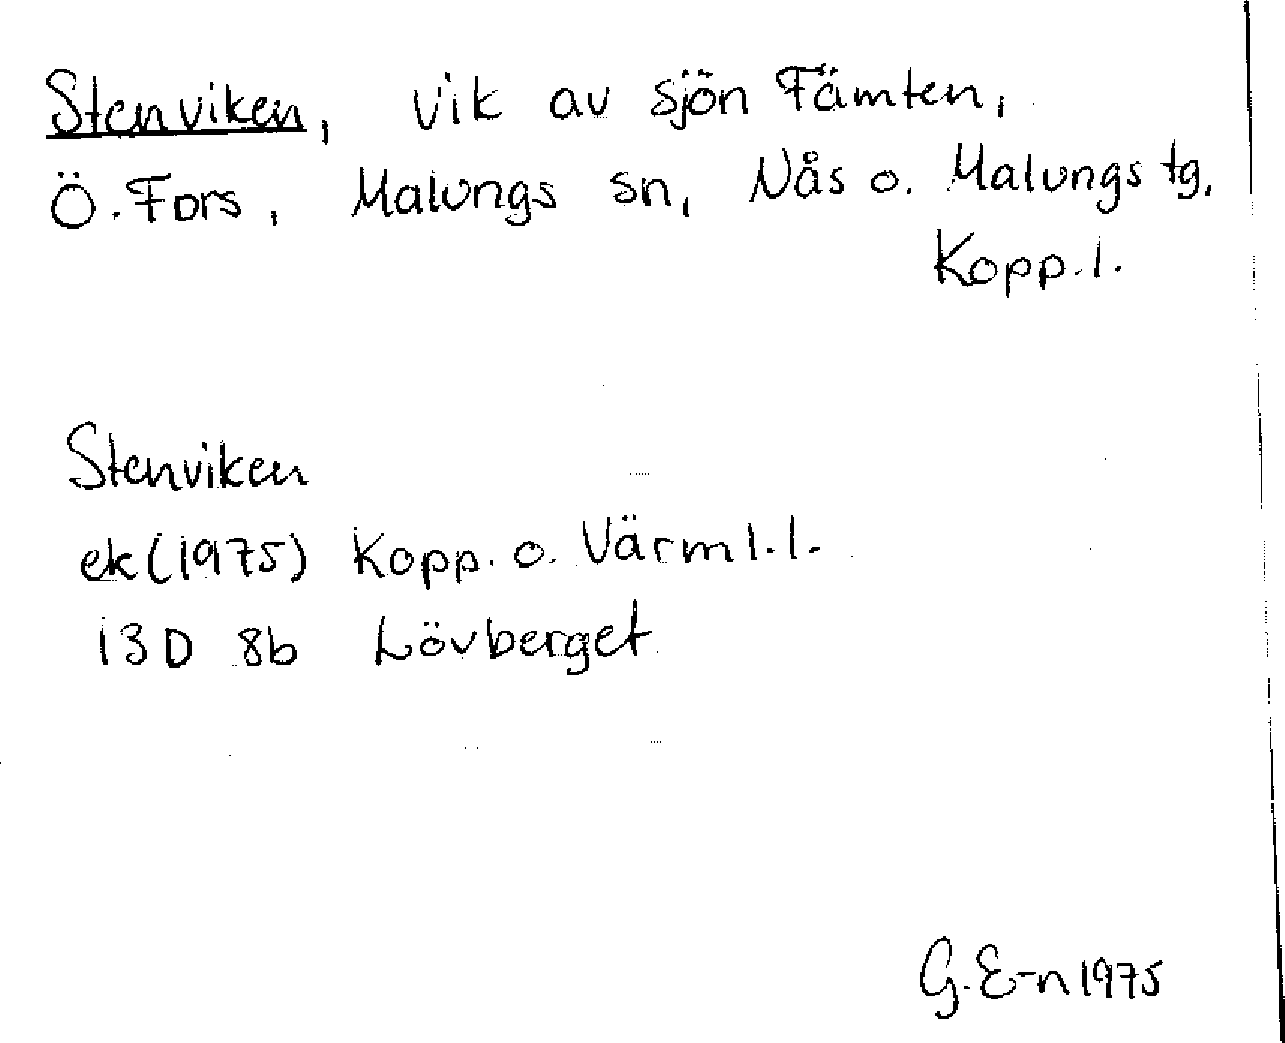 Stenviken, vik av sjön Fämten,
Ö. Fors, Malungs sn, Nås o. Malungs tg.
Kopp. l.
Stenviken
ek (1975) Kopp. o. Värml. l.
13D 8b Lövberget
G. E-n 1975